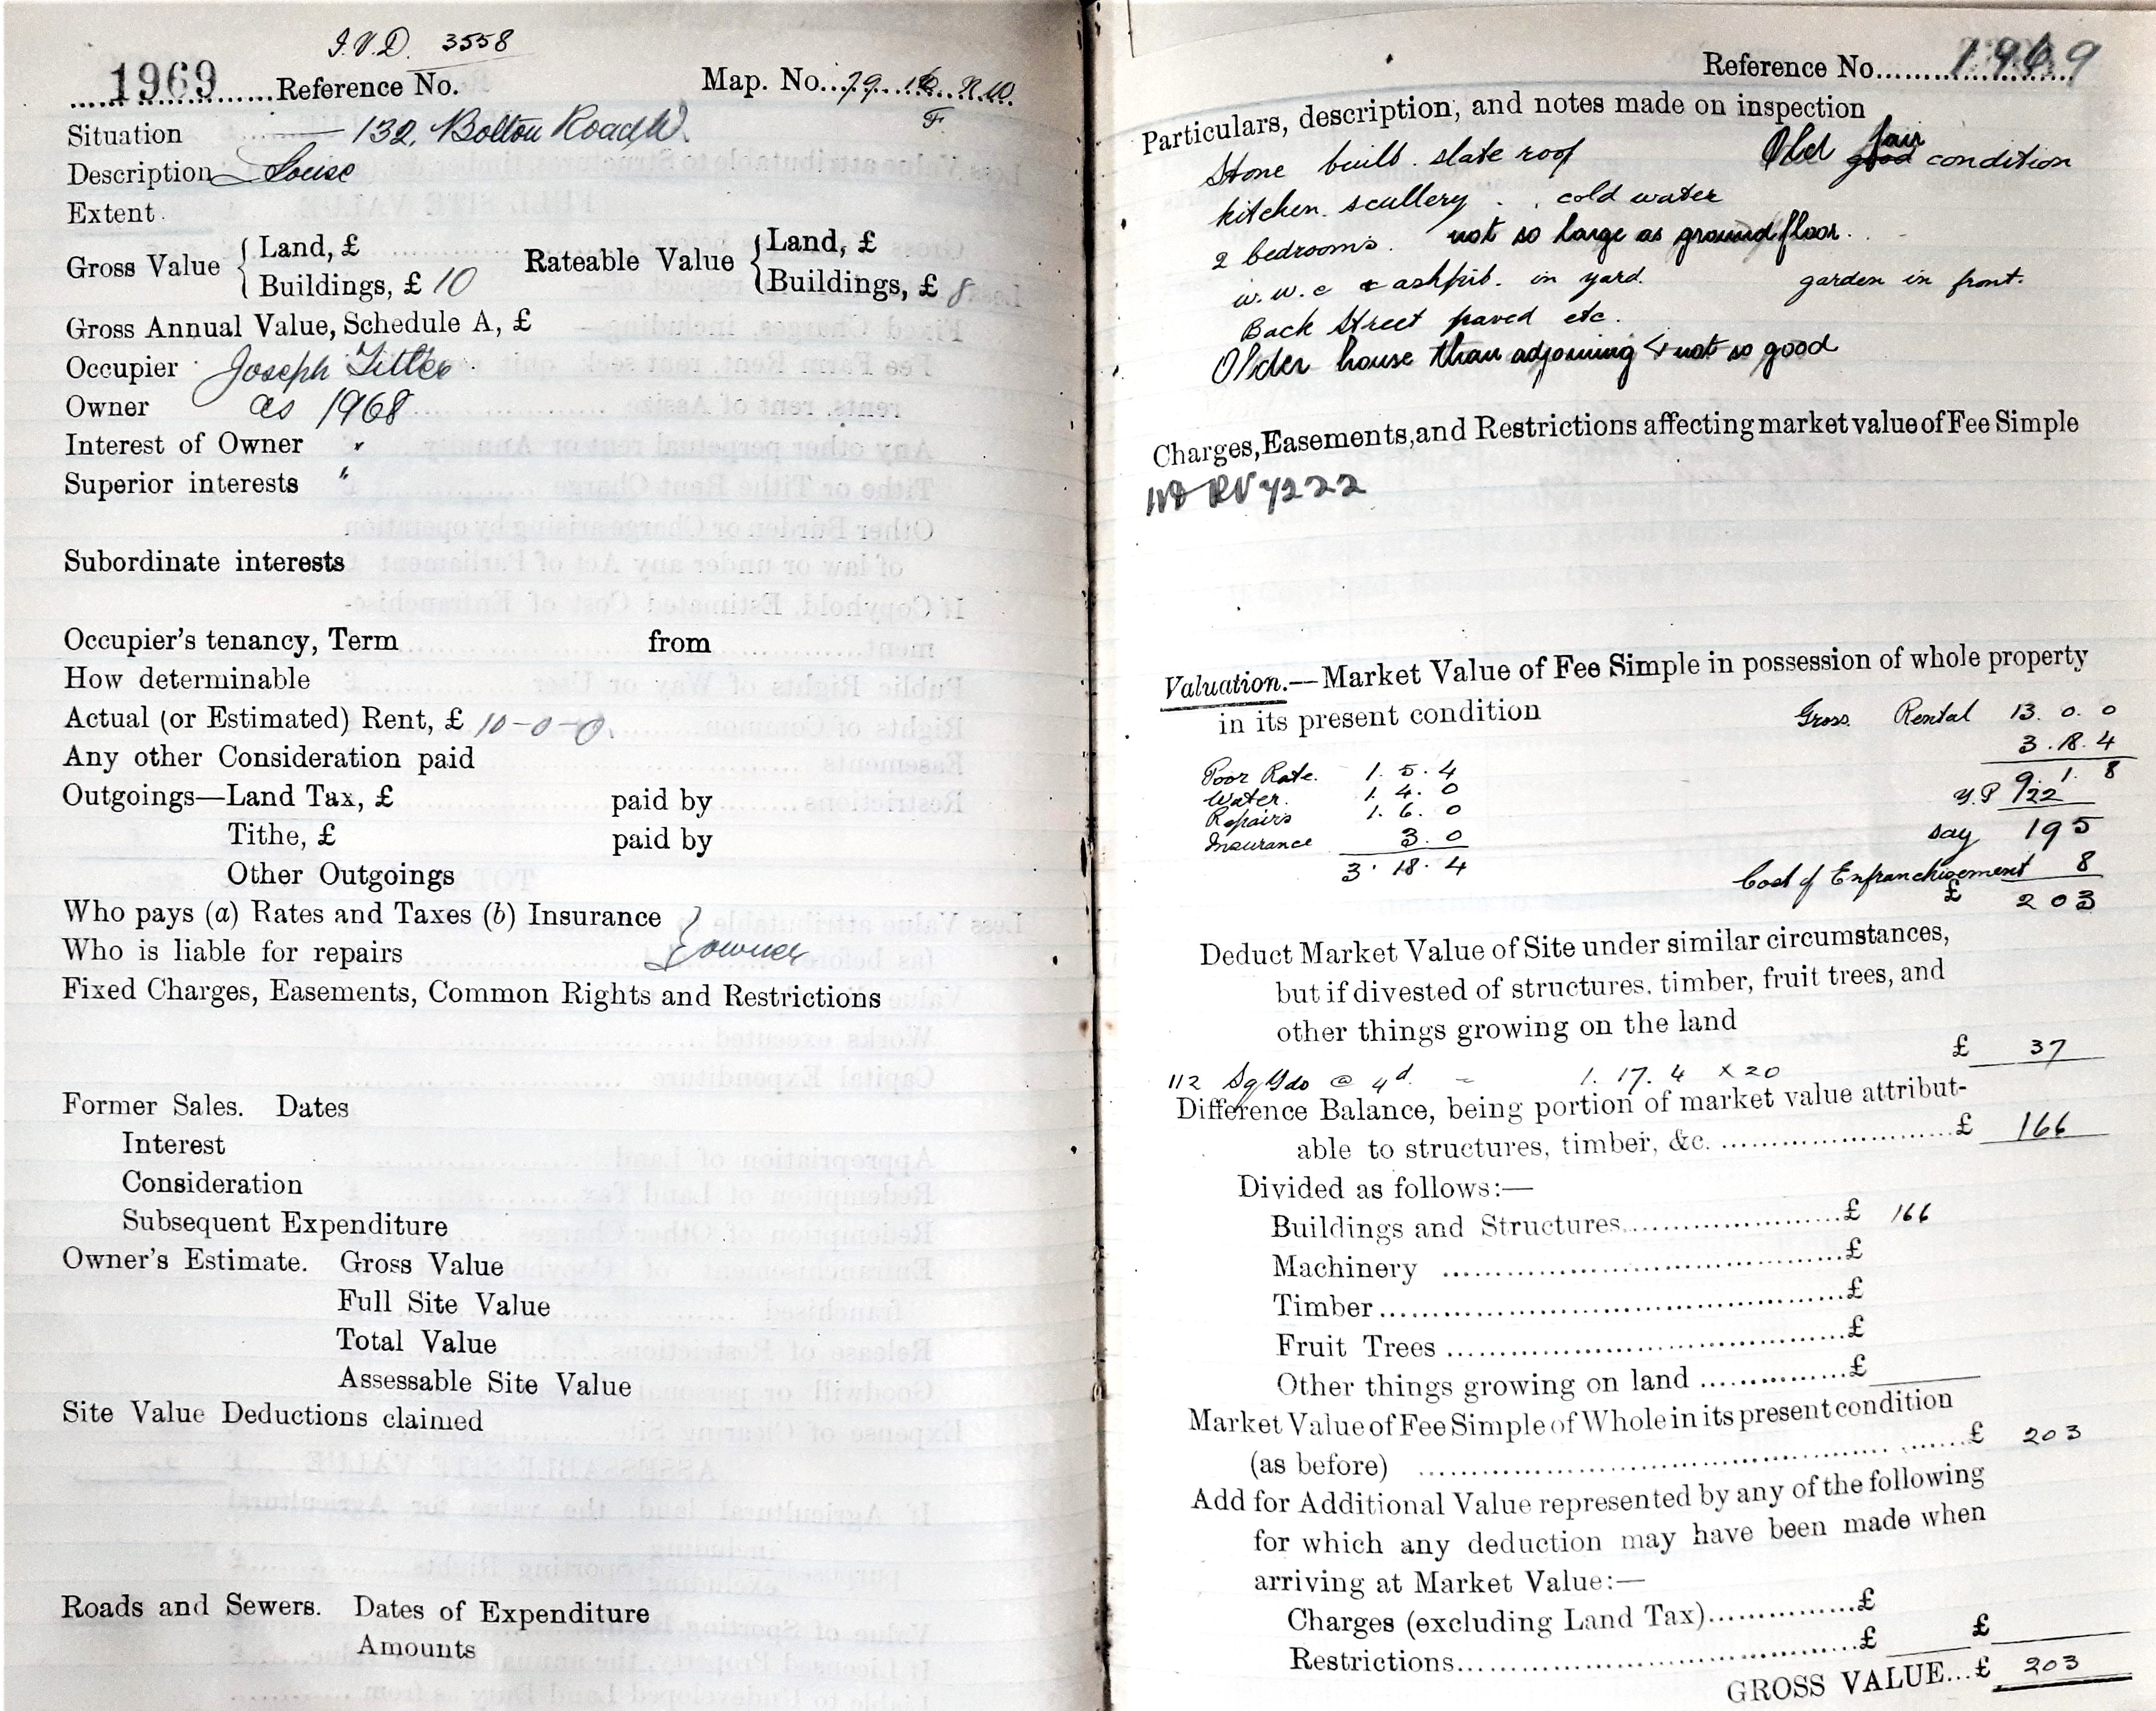 I.V.D. 3558
1969 Reference No. Map. No. 79. 16. N.W.
F.
Situation 132, Bolton Road W.
Description House
Extent
Gross Value { Land, £ Rateable Value { Land, £
Buildings, £ 10 Buildings, £ 8
Gross Annual Value, Schedule A, £
Occupier Joseph
Owner as 1968
Interest of Owner "
Superior interests "
Subordinate interests
Occupier's tenancy, Term from
How determinable
Actual (or Estimated) Rent, £ 10-0-0.
Any other Consideration paid
Outgoings—Land Tax, £ paid by
Tithe, £ paid by
Other Outgoings
Who pays (a) Rates and Taxes (b) Insurance }
Who is liable for repairs } owner
Fixed Charges, Easements, Common Rights and Restrictions
Former Sales. Dates
Interest
Consideration
Subsequent Expenditure
Owner's Estimate. Gross Value
Full Site Value
Total Value
Assessable Site Value
Site Value Deductions claimed
Roads and Sewers. Dates of Expenditure
Amounts
Reference No. 1969
Particulars, description, and notes made on inspection
Stone built. slate roof Old good fair condition
kitchen. scullery . . cold water
2 bedrooms. not so large as ground floor.
w.w.c & ashpit. in yard. garden in front.
Back Street paved etc.
Older house than adjoining & not so good
Charges, Easements, and Restrictions affecting market value of Fee Simple
RV 7222
Valuation.—Market Value of Fee Simple in possession of whole property
in its present condition Gross Rental 13. 0. 0
3. 18. 4
Poor Rate. 1. 5. 4 9. 1. 8
Water. 1. 4. 0 Y.P 22
Repairs 1. 6. 0
Insurance 3. 0 say 195
3. 18. 4 Cost of Enfranchisement 8
£ 203
Deduct Market Value of Site under similar circumstances,
but if divested of structures, timber, fruit trees, and
other things growing on the land
£ 37
112 Sq Yds @ 4d. - 1. 17. 4 x 20
Difference Balance, being portion of market value attribut-
able to structures, timber, &c. £ 166
Divided as follows:—
Buildings and Structures £ 166
Machinery £
Timber £
Fruit Trees £
Other things growing on land £
Market Value of Fee Simple of Whole in its present condition
(as before) £ 203
Add for Additional Value represented by any of the following
for which any deduction may have been made when
arriving at Market Value:—
Charges (excluding Land Tax) £
Restrictions £ £
GROSS VALUE... £ 203